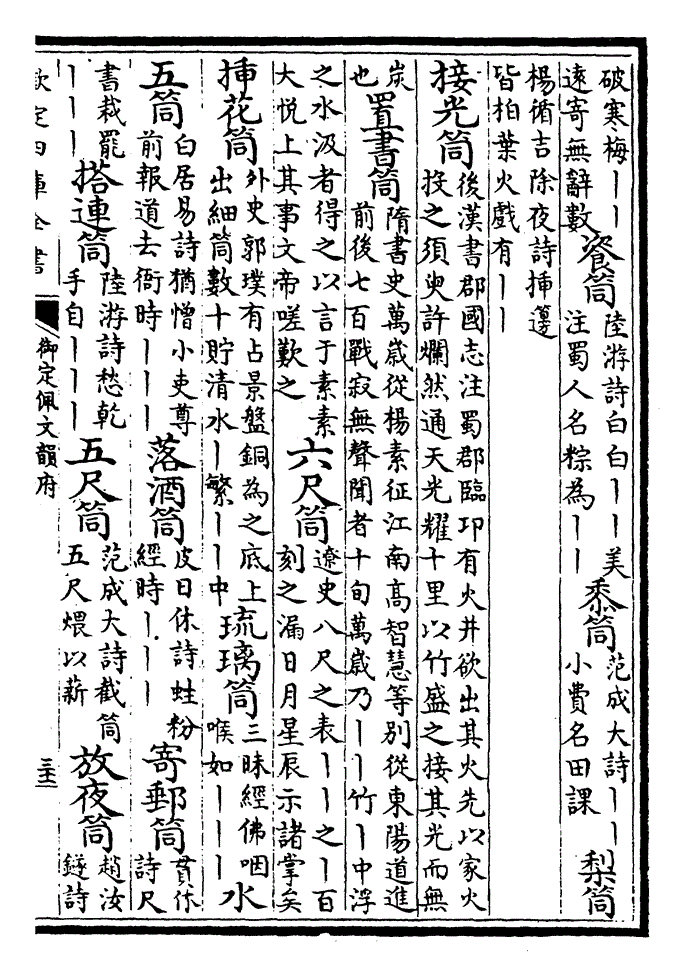 破寒梅丨丨遠寄無辭數餈筒陸游詩白白丨丨美注蜀人名粽為丨丨黍筒范成大詩丨丨小費名田課梨筒
楊循吉除夜詩揷籩皆柏葉火戲有丨丨
接光筒後漢書郡國志注蜀郡臨卭有火井欲出其火先以家火投之須臾許爛然通天光耀十里以竹盛之接其光而無
炭也置書筒隋書史萬歲從楊素征江南高智慧等别從東陽道進前後七百戰寂無聲聞者十旬萬歲乃丨丨竹丨中浮
之水汲者得之以言于素素大悦上其事文帝嗟歎之六尺筒遼史八尺之表丨丨之丨百刻之漏日月星辰示諸掌矣
揷花筒外史郭璞有占景盤銅為之底上出細筒數十貯清水丨繁丨丨中琉璃筒三昧經佛咽喉如丨丨丨水
五筒白居易詩猶憎小吏尊前報道去衙時丨丨丨落酒筒皮日休詩蛀粉經時丨丨丨寄郵筒貫休詩尺
書裁罷丨丨丨搭連筒陸游詩愁乾手自丨丨丨五尺筒范成大詩截筒五尺煨以薪放夜筒趙汝鐩詩
欽定四庫全書
御定佩文韻府